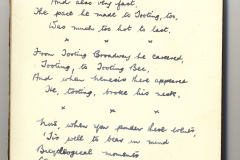 And also very fast,
The pace he made to Tooting, too,
Was much too hot to last.
x x x
From Tooting Broadway he careered,
Tooting, to Tooting Bec,
And when Nemesis there appeared
He, tooting, broke his neck.
x x x
Now, when you ponder these
'Tis well to bear in mind
moments